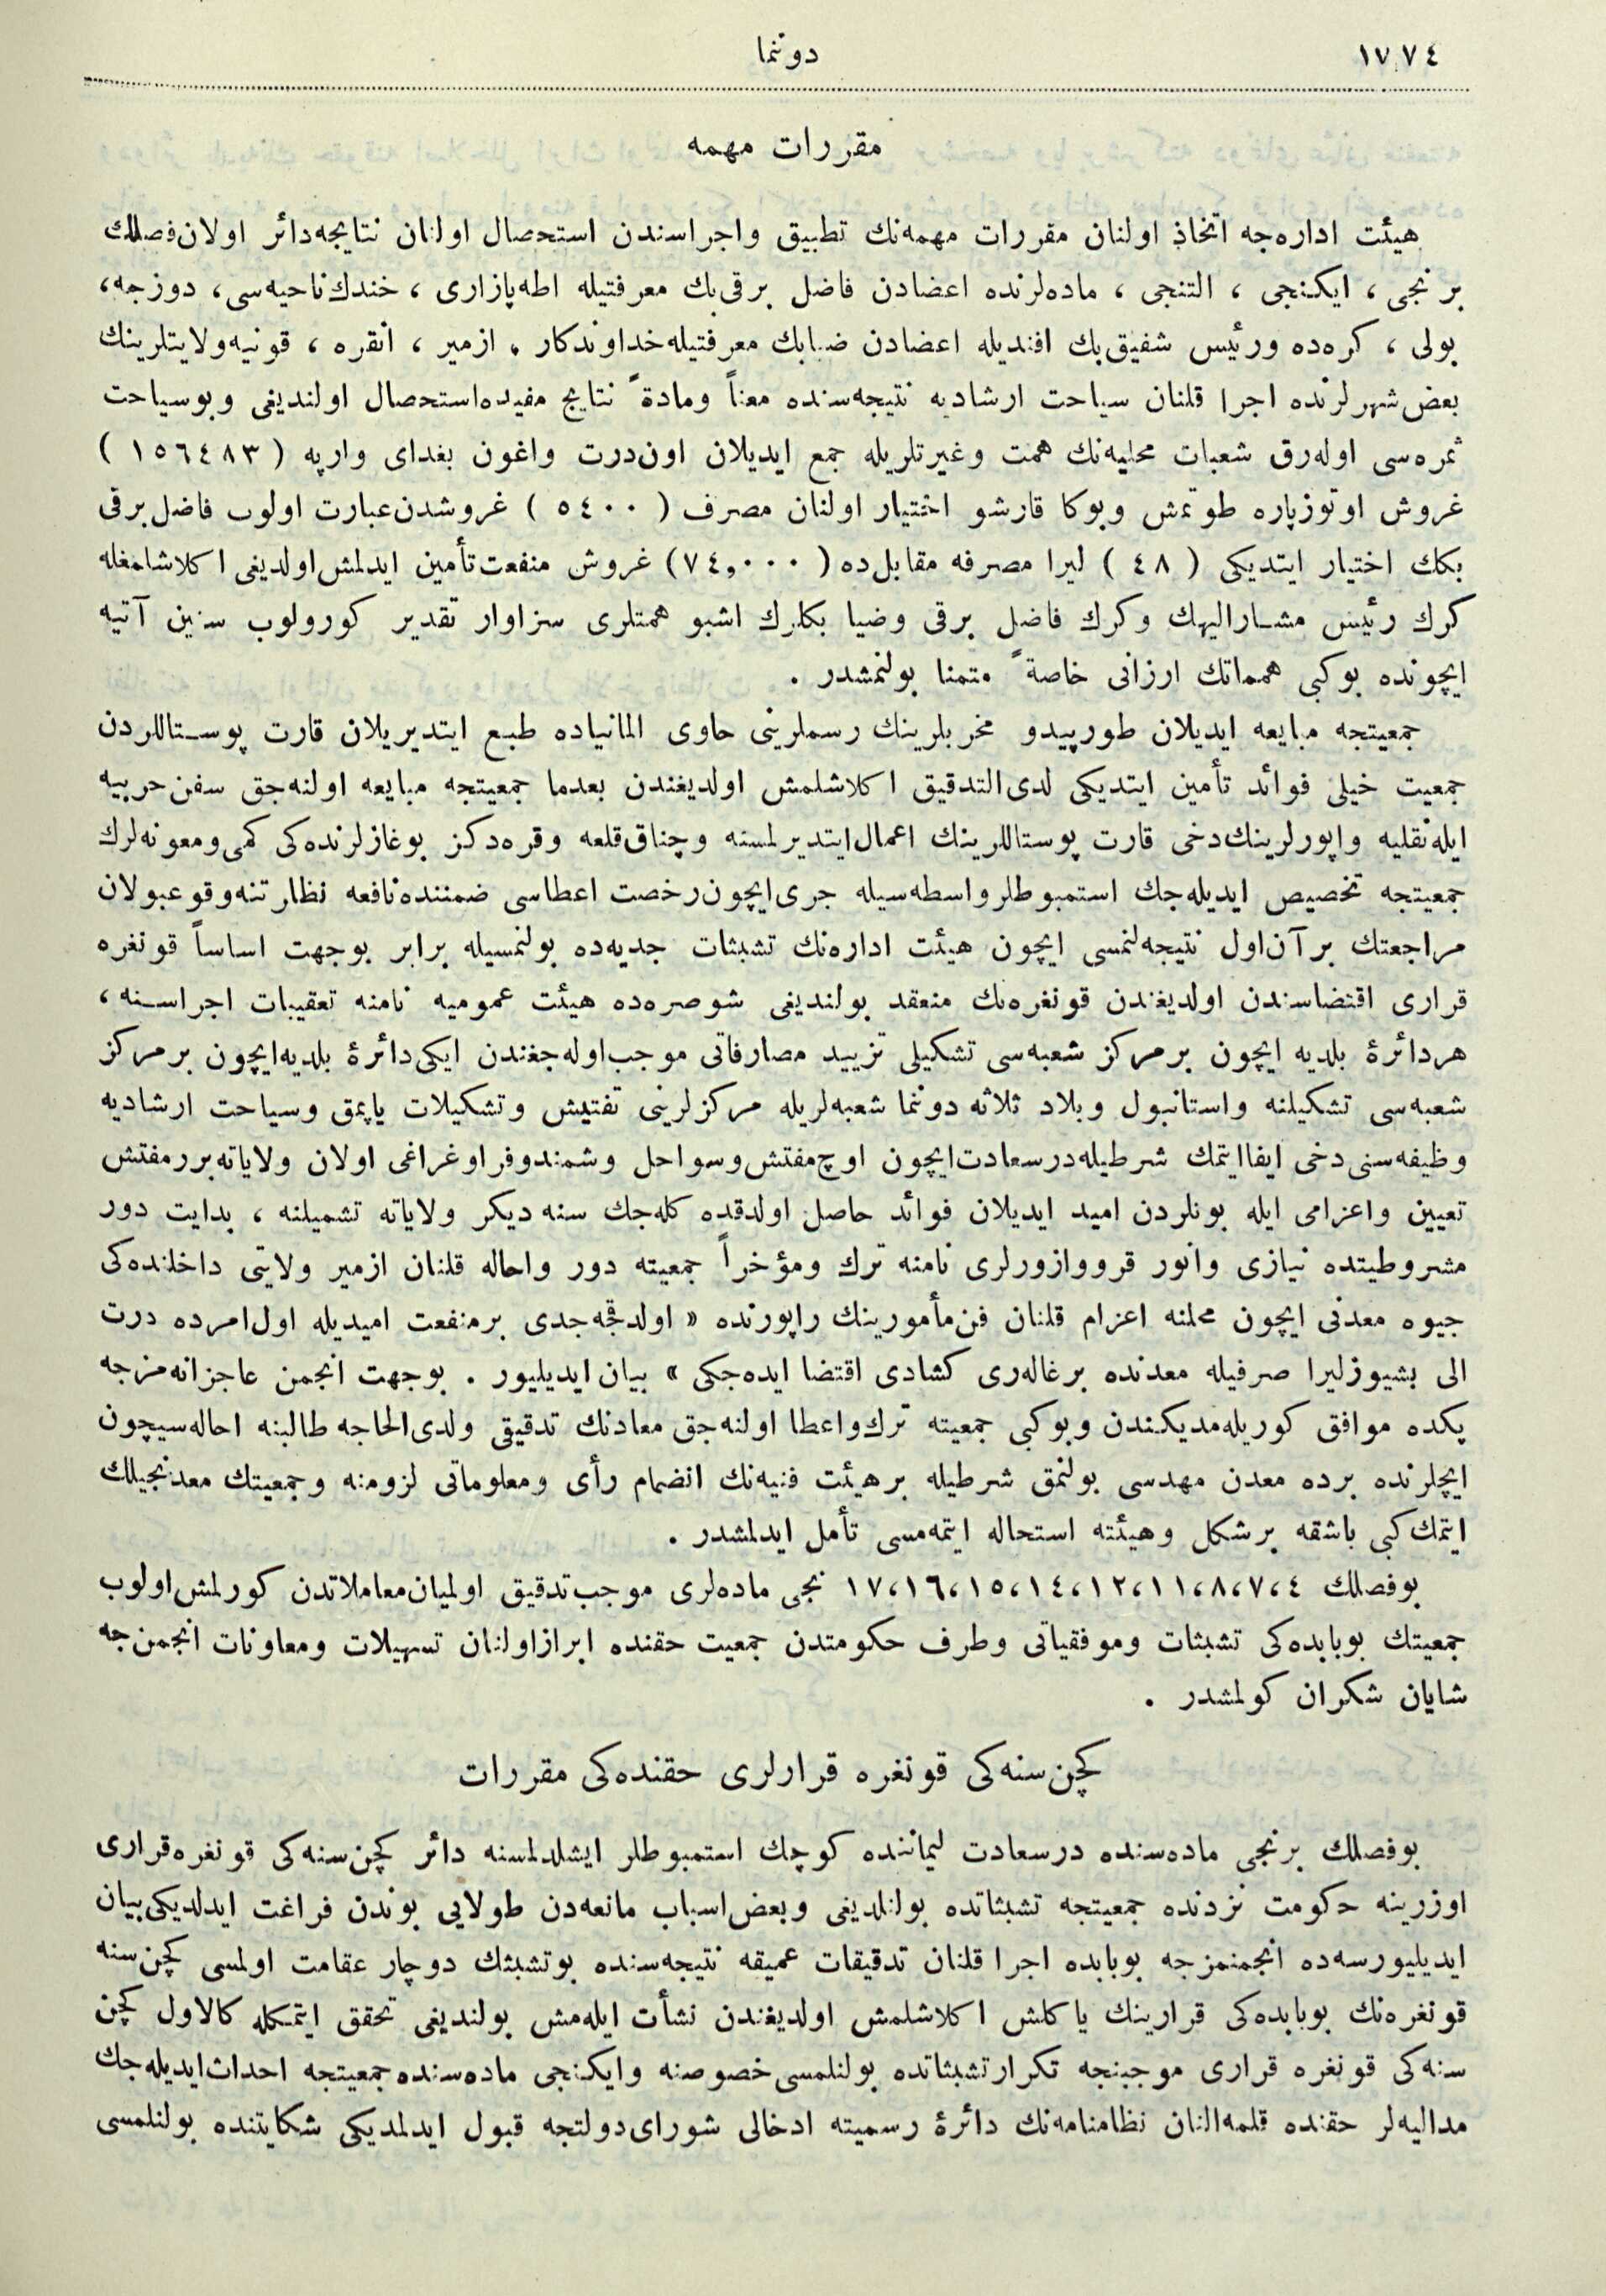 ١٧٧٤
دوننما
مقررات مهمه
هيئت اداره‌جه اتخاذ اولنان مقررات مهمه‌نك تطبيق واجراسندن استحصال اولنان نتايجه‌دائر اولان‌فصلك
برنجى ، ايكنجى ، التنجى ، ماده‌لرنده اعضادن فاضل برقى‌بك معرفتيله اطه‌پازارى ، خندك‌ناحيه‌سى ، دوزجه،
بولى ، كره‌ده ورئيس شفيق‌بك افنديله اعضادن ضيابك معرفتيله‌خداوندكار ، ازمير ، انقره ، قونيه‌ولايتلرينك
بعض‌شهرلرنده اجرا قلنان سياحت ارشاديه نتيجه‌سنده معناً ومادةً نتايج مفيده‌استحصال اولنديغى وبوسياحت
ثمره‌سى اوله‌رق شعبات محليه‌نك همت وغيرتلريله جمع ايديلان اون‌درت واغون بغداى وارپه ( ١٥٦٤٨٣ )
غروش اوتوزپاره طوتمش وبوكا قارشو اختيار اولنان مصرف ( ٥٤٠٠ ) غروشدن‌عبارت اولوب فاضل‌برقى
بكك اختيار ايتديكى ( ٤٨ ) ليرا مصرفه مقابل‌ده ( ٧٤,٠٠٠) غروش منفعت‌تأمين ايدلمش‌اولديغى اكلاشامغله
كرك رئيس مشاراليهك وكرك فاضل برقى وضيا بكلرك اشبو همتلرى سزاوار تقدير كورولوب سنين آتيه
ايچونده بوكبى همماتك ارزانى خاصةً متمنا بولنمشدر .
جمعيتجه مبايعه ايديلان طورپيدو مخربلرينك رسملرينى حاوى المانياده طبع ايتديريلان قارت پوستاللردن
جمعيت خيلى فوائد تأمين ايتديكى لدى‌التدقيق اكلاشلمش اولديغندن بعدما جمعيتجه مبايعه اولنه‌جق سفن‌حربيه
ايله‌نقليه واپورلرينك‌دخى قارت پوستاللرينك اعمال‌ايتديرلمسنه وچناق‌قلعه وقره‌دكز بوغازلرنده‌كى كمى‌ومعونه‌لرك
جمعيتجه تخصيص ايديله‌جك استمبوطلرواسطه‌سيله جرى‌ايچون‌رخصت اعطاسى ضمننده‌نافعه نظارتنه‌وقوعبولان
مراجعتك برآن‌اول نتيجه‌لنمسى ايچون هيئت اداره‌نك تشبثات جديه‌ده بولنمسيله برابر بوجهت اساساً قونغره
قرارى اقتضاسندن اولديغندن قونغره‌نك منعقد بولنديغى شوصره‌ده هيئت عموميه نامنه تعقيبات اجراسنه ،
هردائرهٔ بلديه ايچون برمركز شعبه‌سى تشكيلى تزييد مصارفاتى موجب‌اوله‌جغندن ايكى‌دائرهٔ بلديه‌ايچون برمركز
شعبه‌سى تشكيلنه واستانبول وبلاد ثلاثه دوننما شعبه‌لريله مركزلرينى تفتيش وتشكيلات ياپمق وسياحت ارشاديه
وظيفه‌سنى‌دخى ايفاايتمك شرطيله‌درسعادت‌ايچون اوچ‌مفتش‌وسواحل وشمندوفراوغراغى اولان ولاياته‌بررمفتش
تعيين واعزامى ايله بونلردن اميد ايديلان فوائد حاصل اولدقده كله‌جك سنه ديكر ولاياته تشميلنه ، بدايت دور
مشروطيتده نيازى وانور قرووازورلرى نامنه ترك ومؤخراً جمعيته دور واحاله قلنان ازمير ولايتى داخلنده‌كى
جيوه معدنى ايچون محلنه اعزام قلنان فن‌مأمورينك راپورنده « اولدقجه‌جدى برمنفعت اميديله اول‌امرده درت
الى بشيوزليرا صرفيله معدنده برغاله‌رى كشادى اقتضا ايده‌جكى » بيان ايديليور . بوجهت انجمن عاجزانه‌مزجه
پكده موافق كوريله‌مديكندن وبوكبى جمعيته ترك‌واعطا اولنه‌جق معادنك تدقيقى ولدى‌الحاجه طالبنه احاله‌سيچون
ايچلرنده برده معدن مهدسى بولنمق شرطيله برهيئت فنيه‌نك انضمام رأى ومعلوماتى لزومنه وجمعيتك معدنجيلك
ايتمك‌كبى باشقه برشكل وهيئته استحاله ايتمه‌مسى تأمل ايدلمشدر .
بوفصلك ٤،٧،٨،١١،١٢،١٤،١٥،١٦،١٧ نجى ماده‌لرى موجب‌تدقيق اولميان‌معاملاتدن كورلمش‌اولوب
جمعيتك بوبابده‌كى تشبثات وموفقياتى وطرف حكومتدن جمعيت حقنده ابرازاولنان تسهيلات ومعاونات انجمن‌جه
شايان شكران كولمشدر .
كچن‌سنه‌كى قونغره قرارلرى حقنده‌كى مقررات
بوفصلك برنجى ماده‌سنده درسعادت ليماننده كوچك استمبوطلر ايشلدلمسنه دائر كچن‌سنه‌كى قونغره‌قرارى
اوزرينه حكومت نزدنده جمعيتجه تشبثاتده بولنلديغى وبعض‌اسباب مانعه‌دن طولايى بوندن فراغت ايدلديكى‌بيان
ايديليورسه‌ده انجمنمزجه بوبابده اجرا قلنان تدقيقات عميقه نتيجه‌سنده بوتشبثك دوچار عقامت اولمسى كچن‌سنه
قونغره‌نك بوبابده‌كى قرارينك ياكلش اكلاشلمش اولديغندن نشأت ايله‌مش بولنديغى تحقق ايتمكله كالاول كچن
سنه‌كى قونغره قرارى موجبنجه تكرارتشبثاتده بولنلمسى‌خصوصنه وايكنجى ماده‌سنده‌جمعيتجه احداث‌ايديله‌جك
مداليه‌لر حقنده قلمه‌النان نظامنامه‌نك دائرهٔ رسميته ادخالى شوراى‌دولتجه قبول ايدلمديكى شكايتنده بولنلمسى